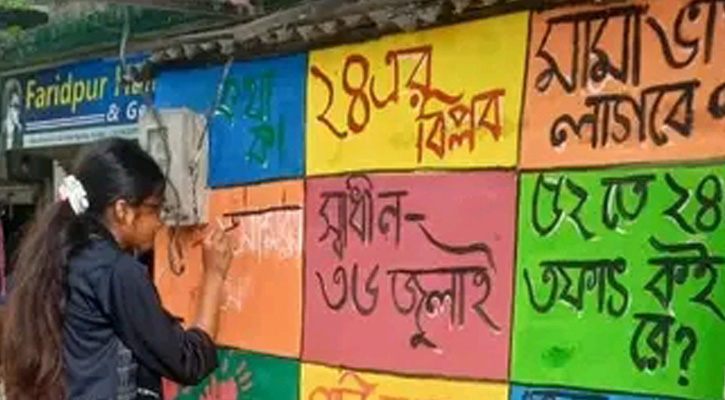 Faridpur
& Ge
কথা
ক
২৪এর
বিপ্লব
মামা ভা
লাগবে
স্বাধীন-
৩৬ জুলাই
৫২ তে ২৪
তফাৎ কই
রে?